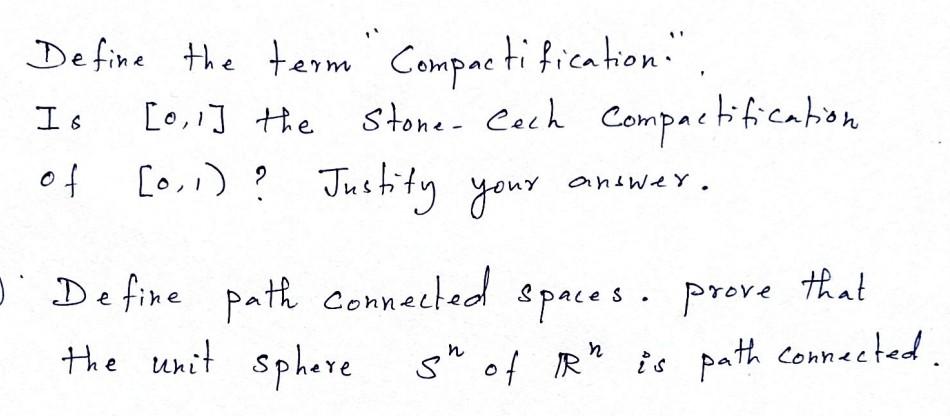 Define the term "Compactification".
Is [0,1] the Stone-Cech Compactification
of [0,1) ? Justify your answer.
Define path connected spaces. prove that
the unit sphere Sⁿ of ℝⁿ is path connected.